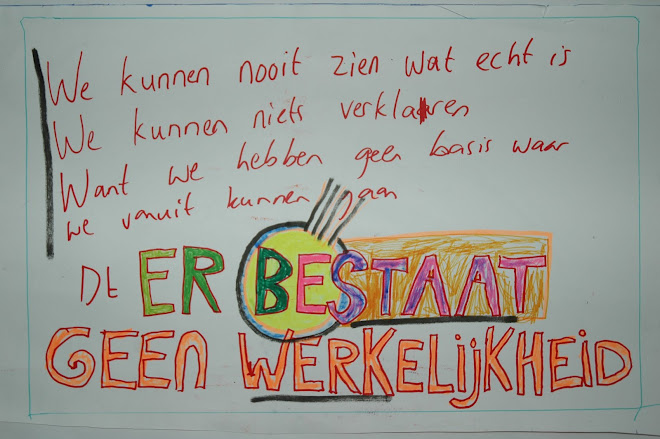 We kunnen nooit zien wat echt is
We kunnen niets verklaren
Want we hebben geen basis waar
we vanuit kunnen gaan
Dt ER BESTAAT
GEEN WERKELIJKHEID